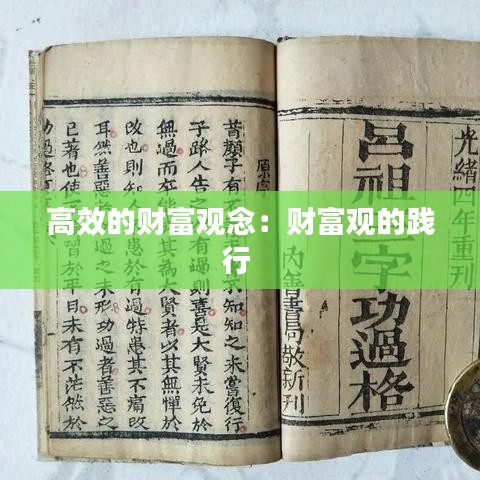 高效的财富观念：财富观的践
行
光緒四年重刊
呂祖
字功過格
內善書局敬新刊
原序
昔顏子有不
不知知之未嘗復行
子路人告之
過則喜是大賢未免於
無過而在能
其為大賢者以其無憚於
改也不患知
有過特患其不痛改
耳然善惡
未形功過者善惡之
已著也使
平日未有不茫然於